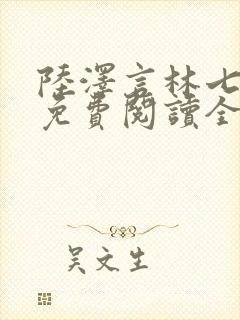 陸澤言林七
免費閱讀全
吴文生